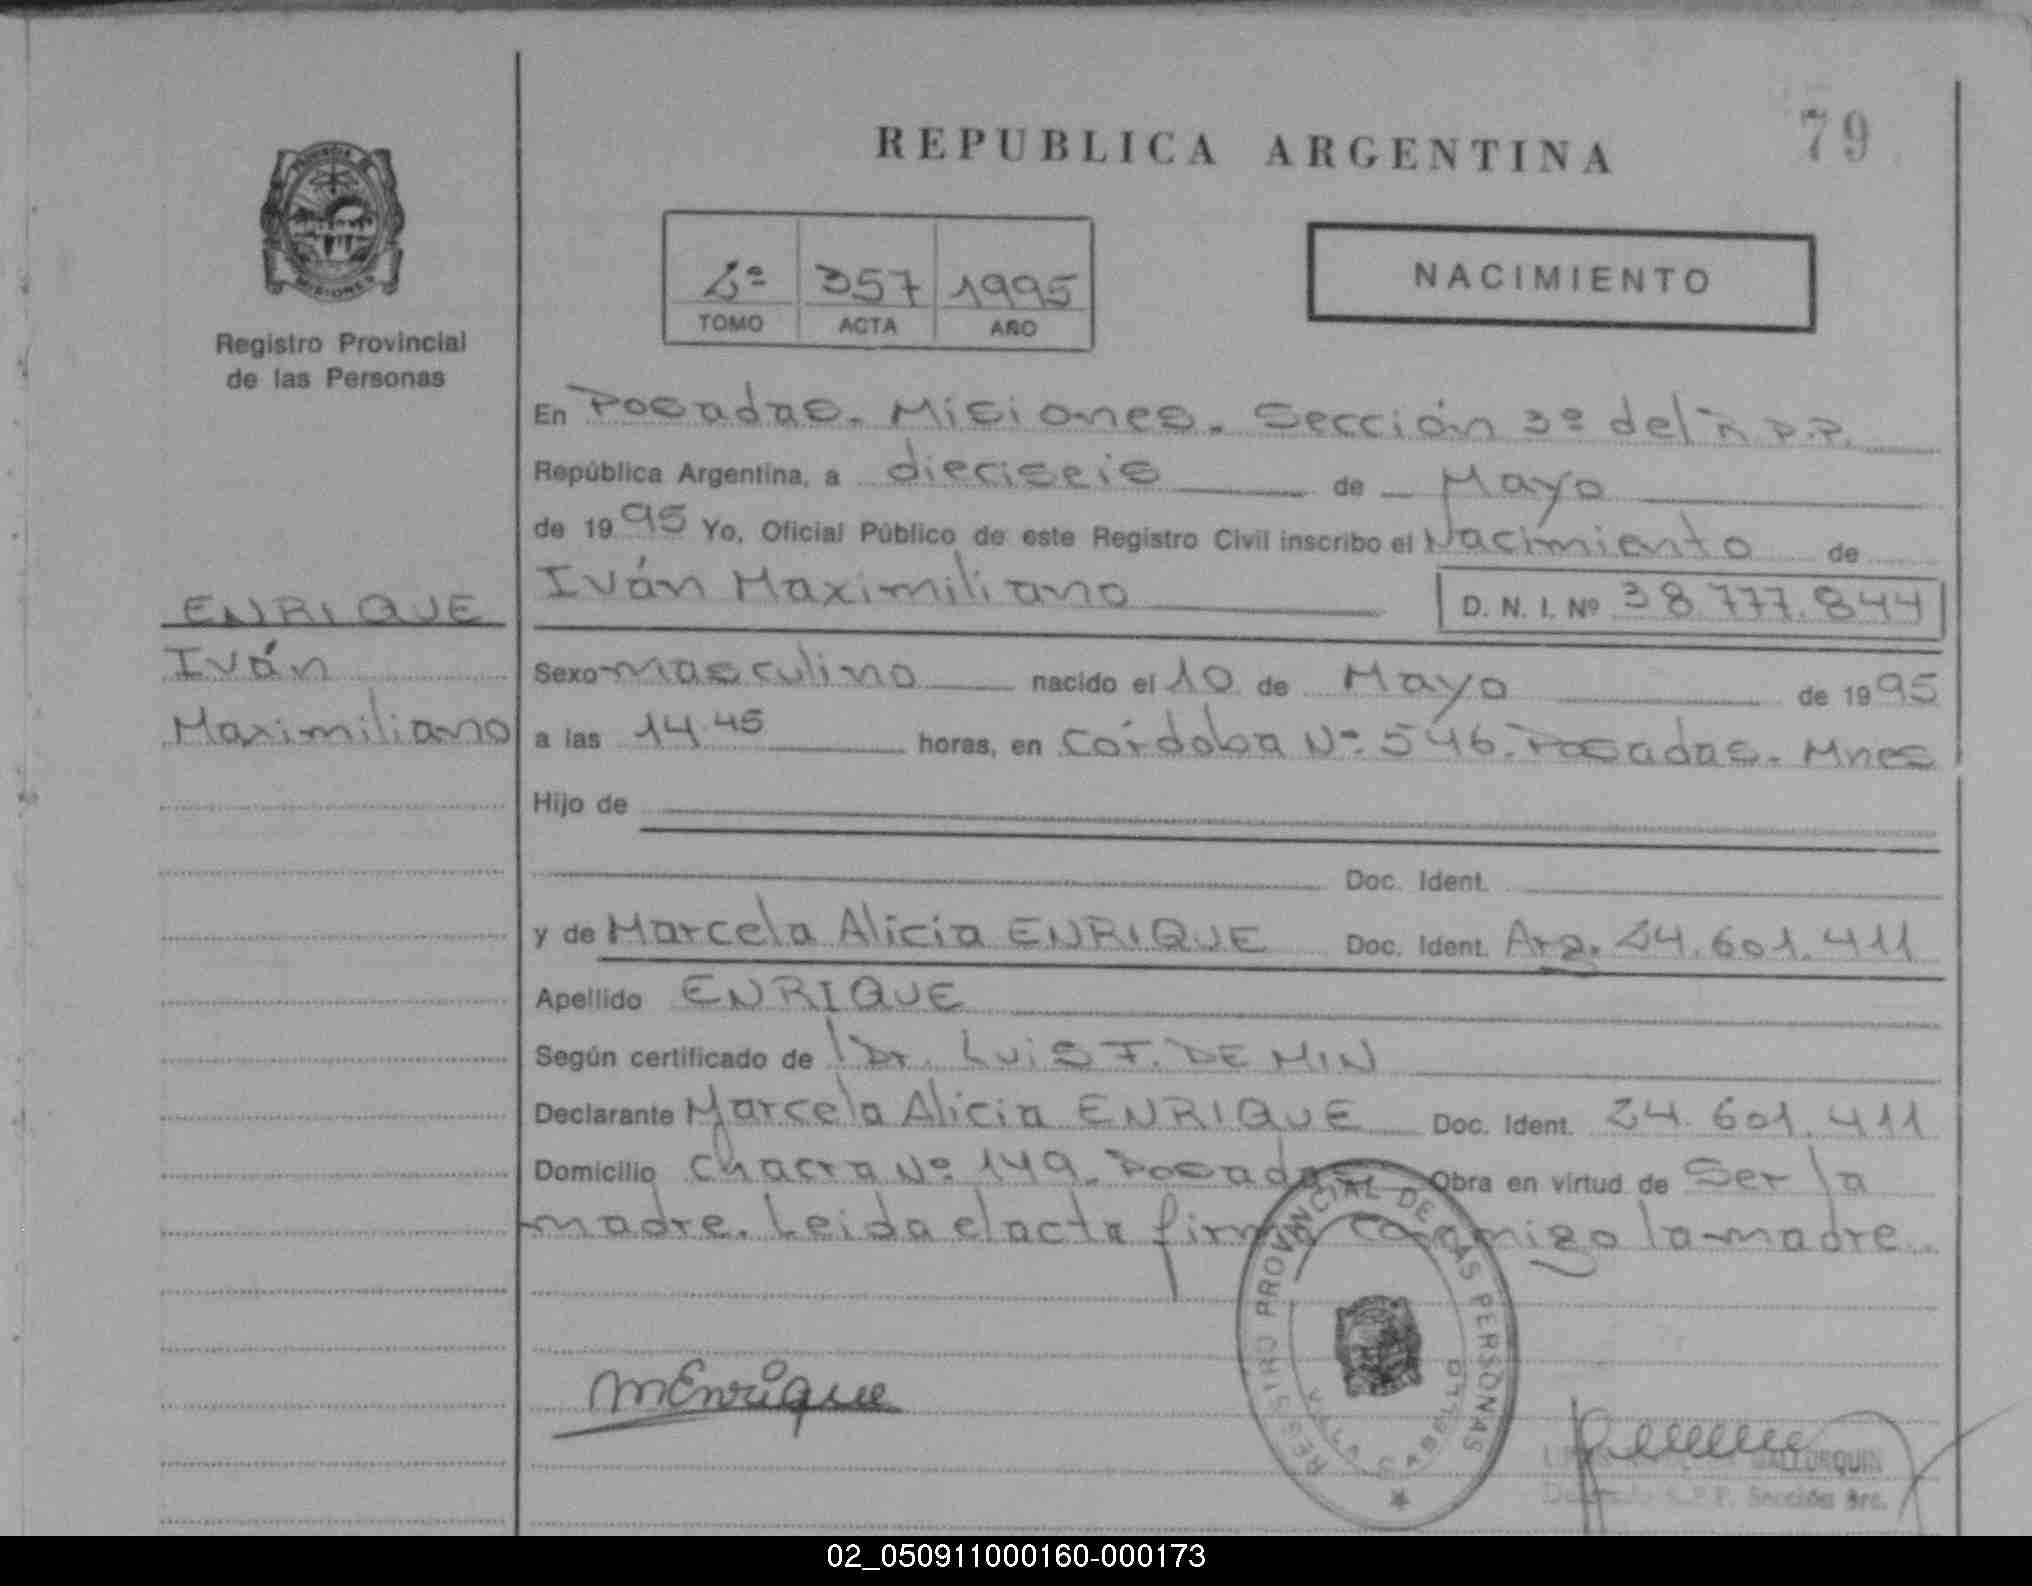 REPUBLICA ARGENTINA
79
PROVINCIA DE
MISIONES
Registro Provincial
de las Personas
2º 357 1995
TOMO ACTA AÑO
NACIMIENTO
En Posadas. Misiones. Sección 3º del R.P.P.
República Argentina, a dieciseis de Mayo
de 1995 Yo, Oficial Público de este Registro Civil inscribo el Nacimiento de
Iván Maximiliano D. N. I. Nº 38.777.844
ENRIQUE
Iván
Maximiliano
Sexo masculino nacido el 10 de Mayo de 1995
a las 14.45 horas, en Córdoba Nº 546. Posadas. Mnes
Hijo de
Doc. Ident.
y de Marcela Alicia ENRIQUE Doc. Ident. Arg. 24.601.411
Apellido ENRIQUE
Según certificado de Dr. LUIS F. DE MIN
Declarante Marcela Alicia ENRIQUE Doc. Ident. 24.601.411
Domicilio Chacra Nº 149. Posadas Obra en virtud de Ser la
madre. Leida el acta firma conmigo la madre.
REGISTRO PROVINCIAL DE LAS PERSONAS
VILLA SARMIENTO
MEnrique
MALLORQUIN
R.P.P. Sección 3ra.
02_050911000160-000173